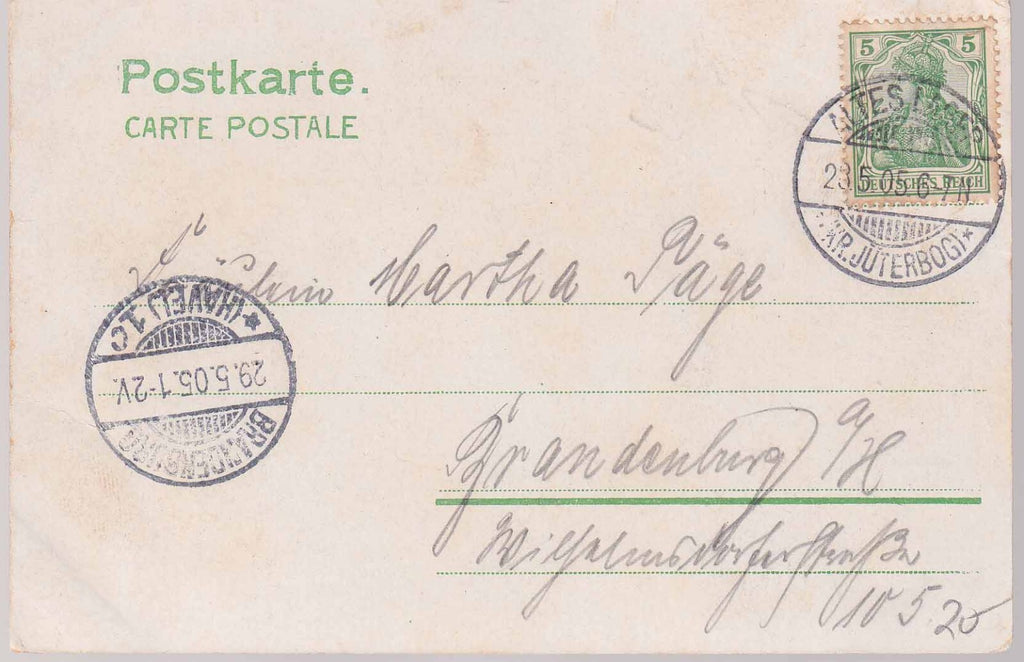 Postkarte.
CARTE POSTALE
5 5
DEUTSCHES REICH
ALTES LAGER
28.5.05.6-7N
* (KR. JÜTERBOG) *
Fräulein Martha Päge
BRANDENBURG
29.5.05.1-2V.
* (HAVEL) 1.C
Brandenburg a/H
Wilhelmsdorferstraße
10 5 20